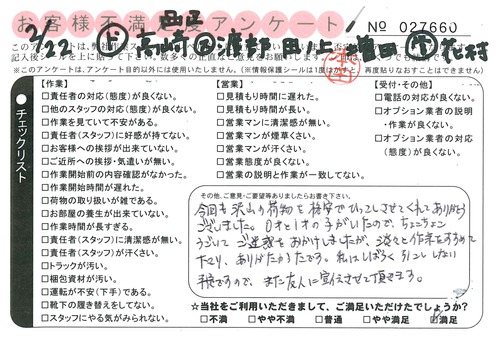 お客様不満足度アンケート
№ 027660
3/22 高崎 渡部 田上 増田 花村
※このアンケートは、アンケート目的以外には使用いたしません。(※情報保護シールは1度はがすと、再度貼りなおすことはできません)
チェックリスト
【作業】
□責任者の対応(態度)が良くない。
□他のスタッフの対応(態度)が良くない。
□作業を見ていて不安がある。
□責任者(スタッフ)に好感が持てない。
□お客様への挨拶が出来ていない。
□ご近所への挨拶・気遣いが無い。
□作業開始前の内容確認がなかった。
□作業開始時間が遅れた。
□荷物の取り扱いが雑である。
□お部屋の養生が出来ていない。
□作業時間が長すぎる。
□責任者(スタッフ)に清潔感が無い。
□責任者(スタッフ)が汗くさい。
□トラックが汚い。
□梱包資材が汚い。
□運転が不安(下手)である。
□靴下の履き替えをしてない。
□スタッフにやる気がみられない。
【営業】
□見積もり時間に遅れた。
□見積もり時間が長い。
□営業マンに清潔感が無い。
□営業マンが煙草くさい。
□営業マンが汗くさい。
□営業態度が良くない。
□営業の説明と作業が一致してない。
【受付・その他】
□電話の対応が良くない。
□オプション業者の説明
・作業が良くない。
□オプション業者の対応
(態度)が良くない。
その他、ご意見・ご要望等ありましたらお書き下さい。
今回も沢山の荷物を格安でひっこしさせてくれてありがとう
ございました。0才と1才の子がいたので、ちょこちょこ
うごいて ご迷惑もおかけしましたが、淡々と作業をすすめて
下さり、ありがたかったです。私はしばらく引こししない
予定ですので、また友人に宣伝させて頂きます。
☆当社をご利用いただきまして、ご満足いただけたでしょうか？
□不満 □やや不満 □普通 □やや満足 □満足